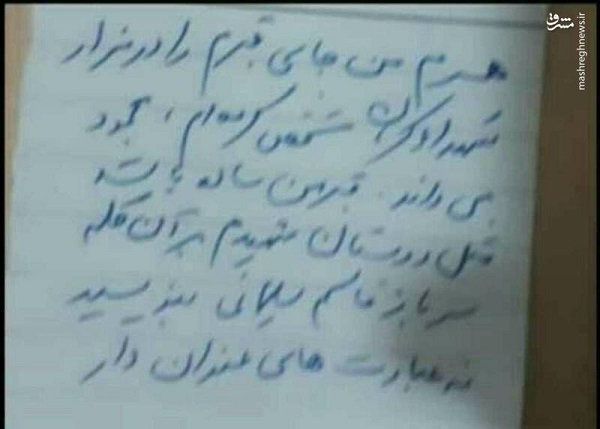 همسرم من جای قبرم را در مزار
شهدا کرمان مشخص کرده‌ام، محمود
می داند. قبر من ساده باشد
مثل دوستان شهیدم بر آن کلمه
سرباز قاسم سلیمانی بنویسید
نه عبارت های عنوان دار
مشرق
mashreghnews.ir